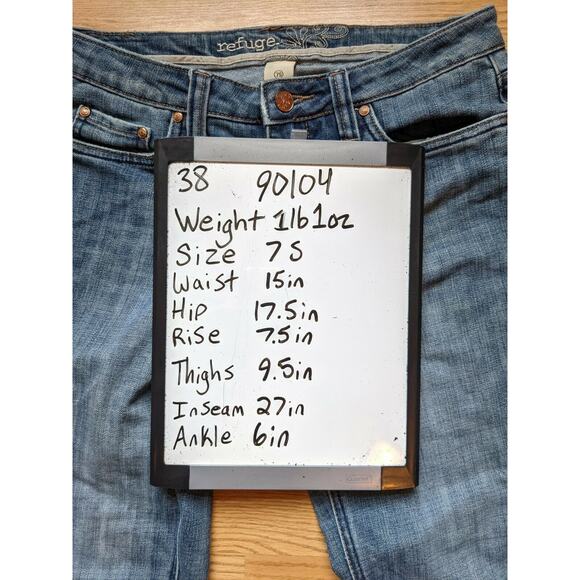 refuge.
38 90104
Weight 1lb 1oz
Size 7 S
Waist 15in
Hip 17.5in
Rise 7.5in
Thighs 9.5in
Inseam 27in
Ankle 6in